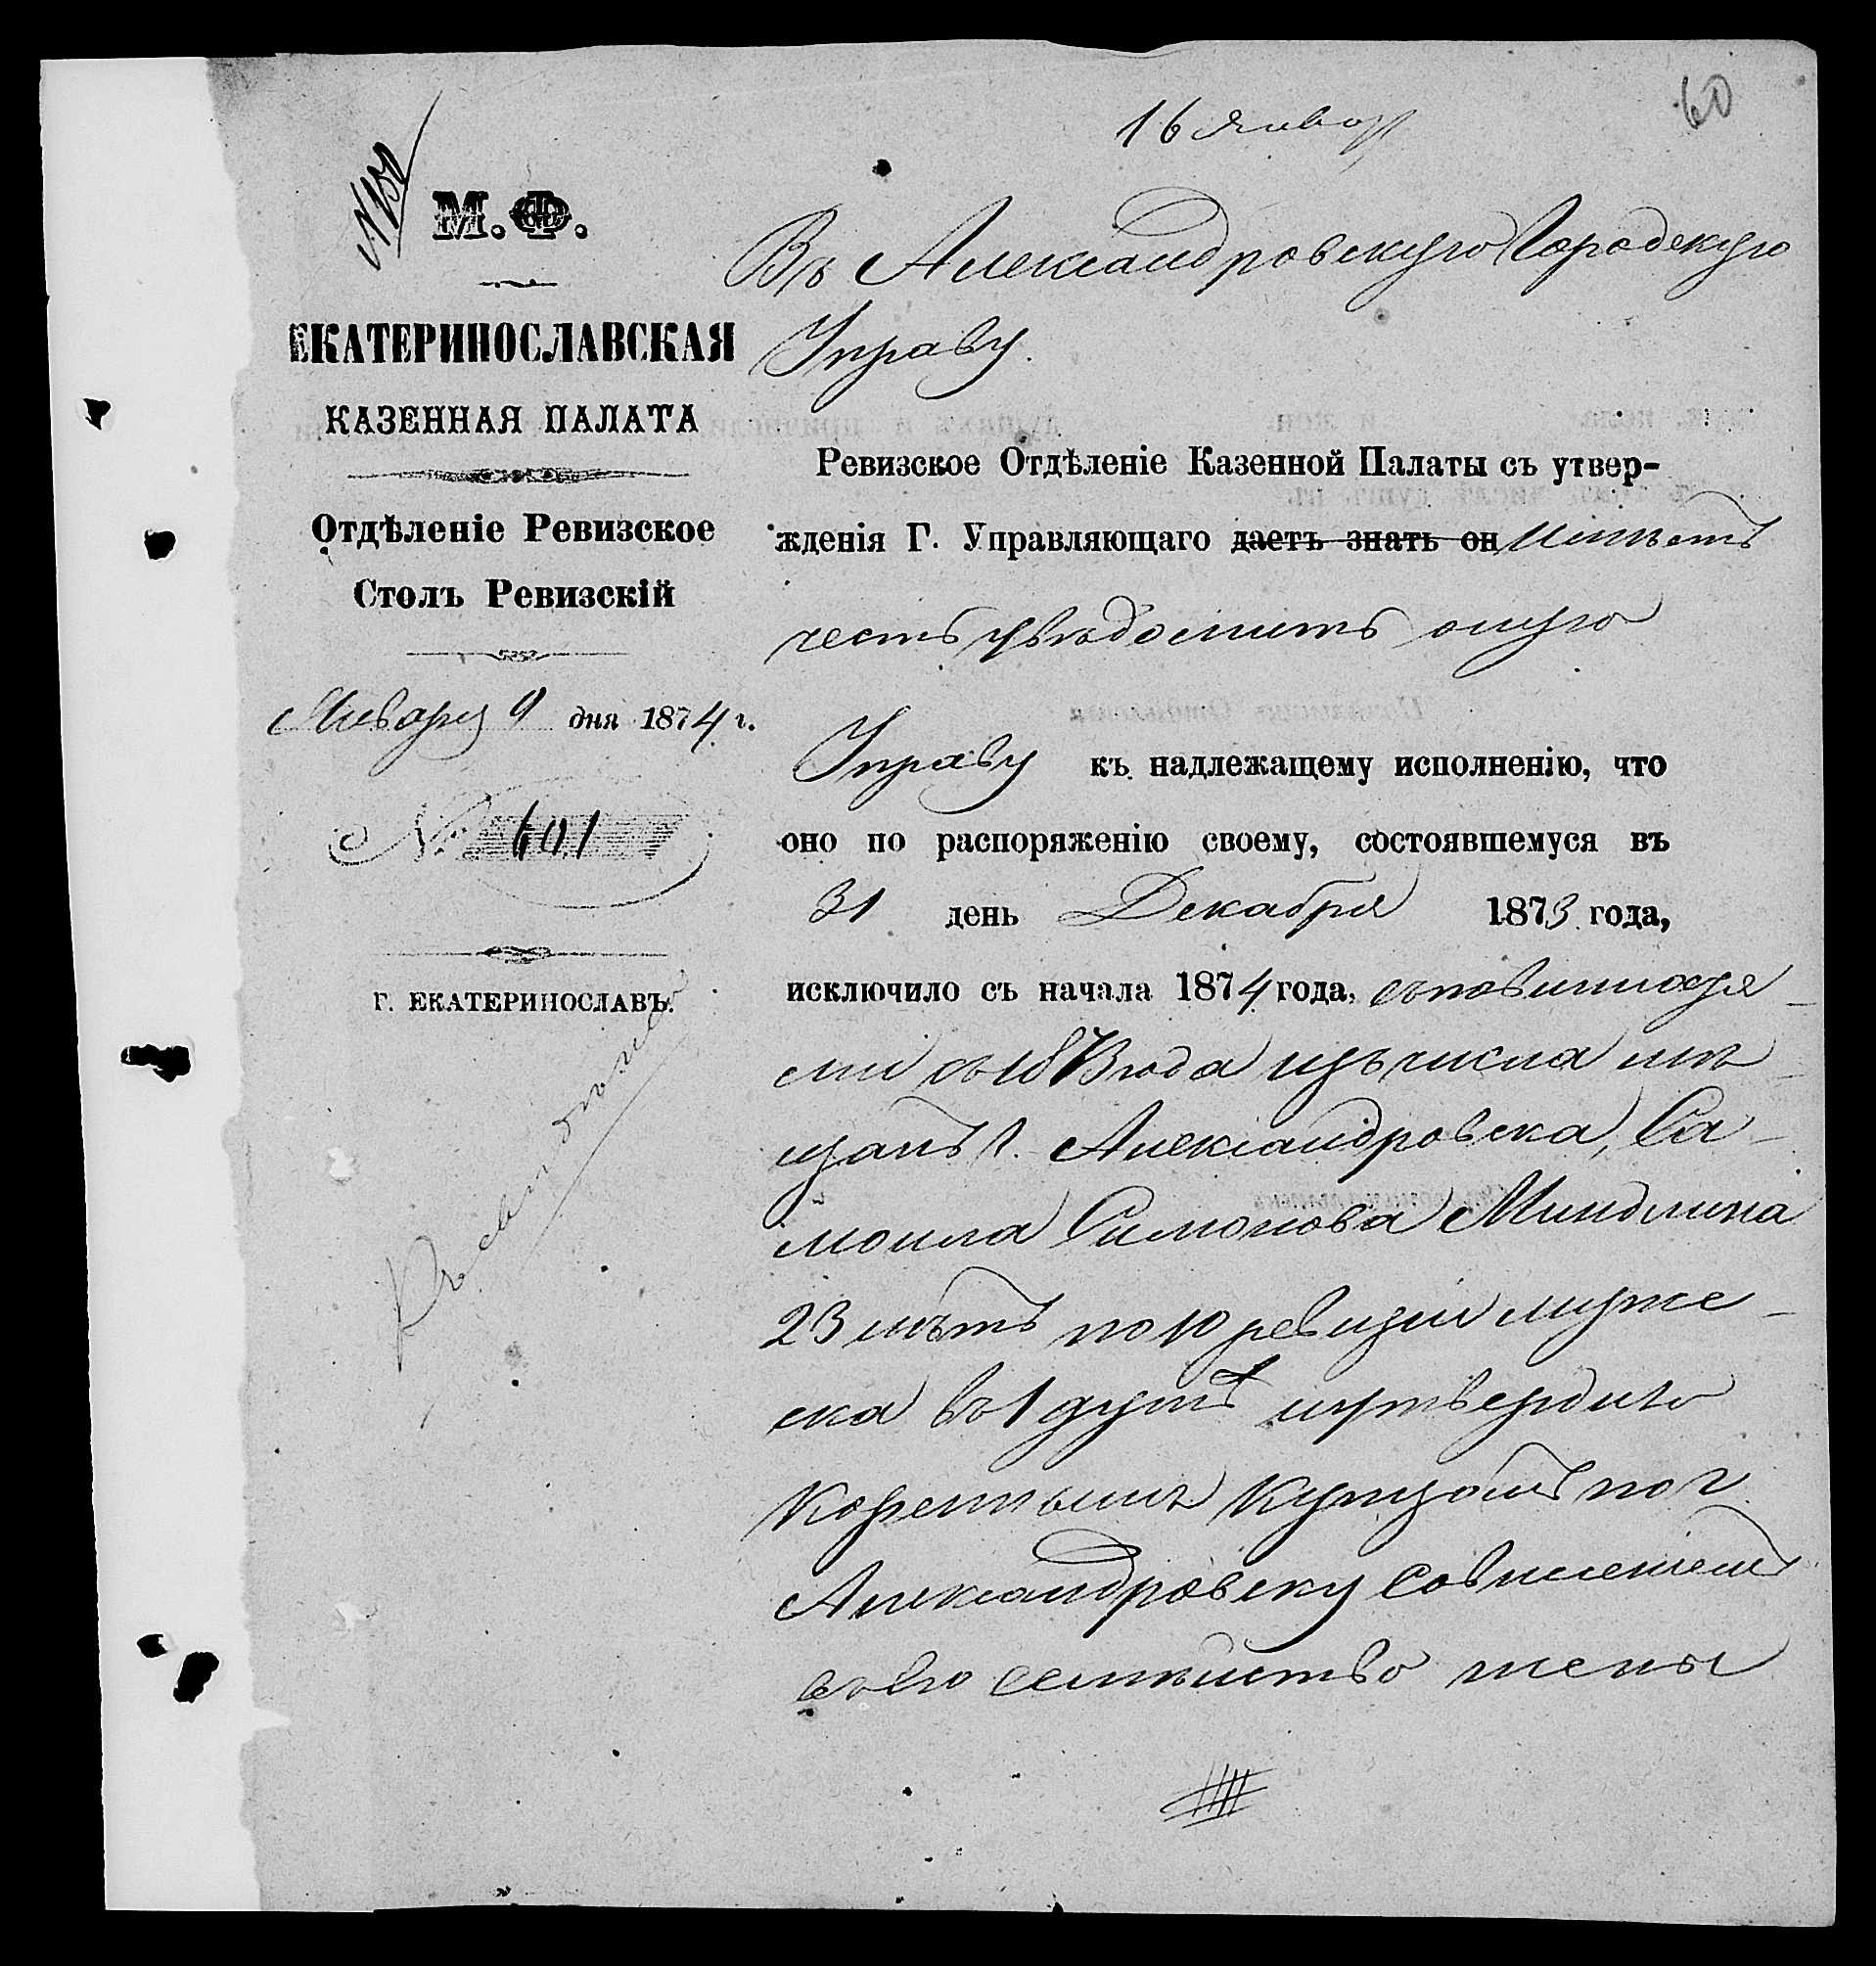 16 январ
60
№ 150
М. Ф.
ЕКАТЕРИНОСЛАВСКАЯ
КАЗЕННАЯ ПАЛАТА
Отдѣленіе Ревизское
Столъ Ревизскій
Января 9 дня 1874 г.
№ 601
Г. ЕКАТЕРИНОСЛАВЪ.
Въ Александровскую Городскую
Управу.
Ревизское Отдѣленіе Казенной Палаты съ утвер-
жденія Г. Управляющаго даетъ знать он имѣетъ
честь увѣдомить оную
Управу къ надлежащему исполненію, что
оно по распоряженію своему, состоявшемуся въ
31 день Декабря 1873 года,
исключило съ начала 1874 года,
съ 1873 года изъ числа мѣ
щанъ г. Александровска, Са-
моила Симонова Миндлина
23 лѣтъ по 10 ревизіи муже-
ска въ 1 душѣ и утвердило
купцомъ по г.
Александровску совнесеніемъ
въ его семѣйство жены